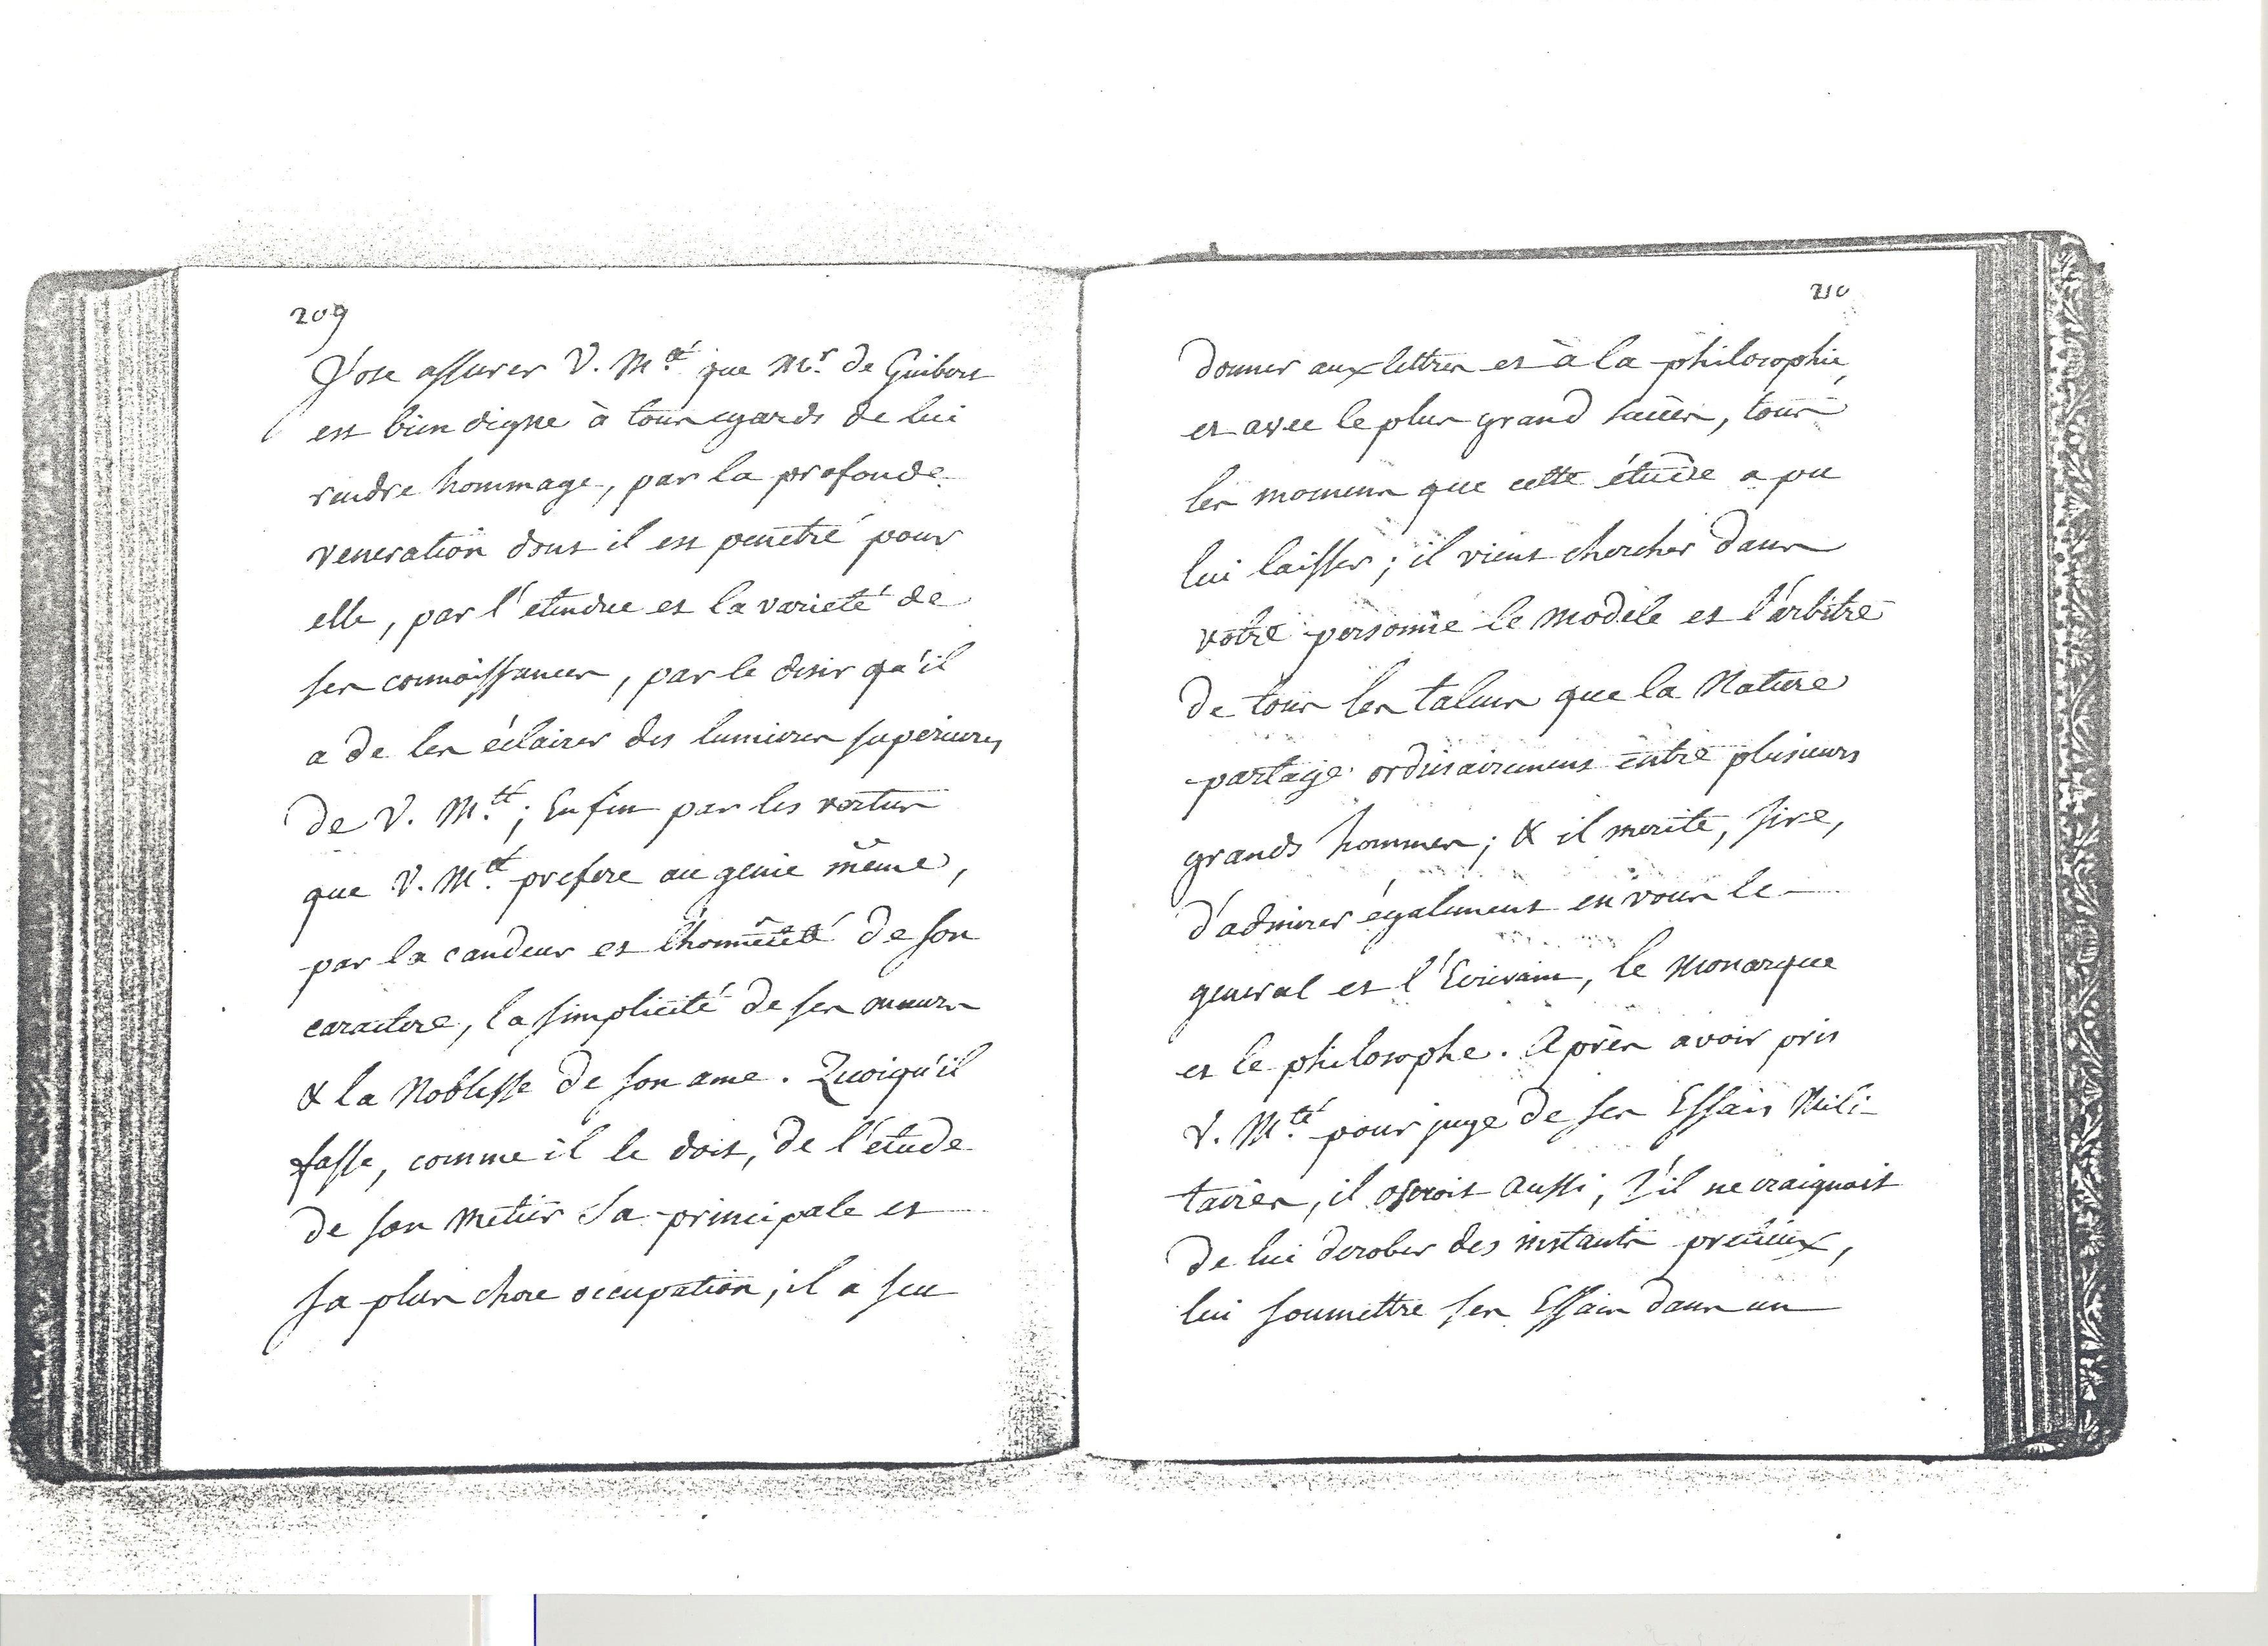 209
J'ose assurer V. M.té que Mr. de Guibert
est bien digne à tous egards de lui
rendre hommage, par la profonde
veneration dont il est penetré pour
elle, par l'étendue et la varieté de
ses connoissances, par le desir qu'il
a de les éclairer des lumieres superieures
de V. M.té; Enfin par les vertus
que V. M.té prefere au genie même,
par la candeur et l'honnêteté de son
caractere, la simplicité de ses mœurs
& la Noblesse de son ame. Quoiqu'il
fasse, comme il le doit, de l'étude
de son metier sa principale et
sa plus chere occupation, il a seu
210
donner aux lettres et à la philosophie,
et avec le plus grand succès, tous
les momens que cette étude a pu
lui laisser; il vient chercher dans
votre personne le modele et l'arbitre
de tous les talens que la Nature
partage ordinairement entre plusieurs
grands hommes; & il merite, Sire,
d'admirer également en vous le
general et l'Ecrivain, le Monarque
et le philosophe. Après avoir pris
V. M.té pour juge de ses Essais Mili-
taires, il oseroit aussi, s'il ne craignoit
de lui derober des instants precieux,
lui soumettre ses Essais dans un